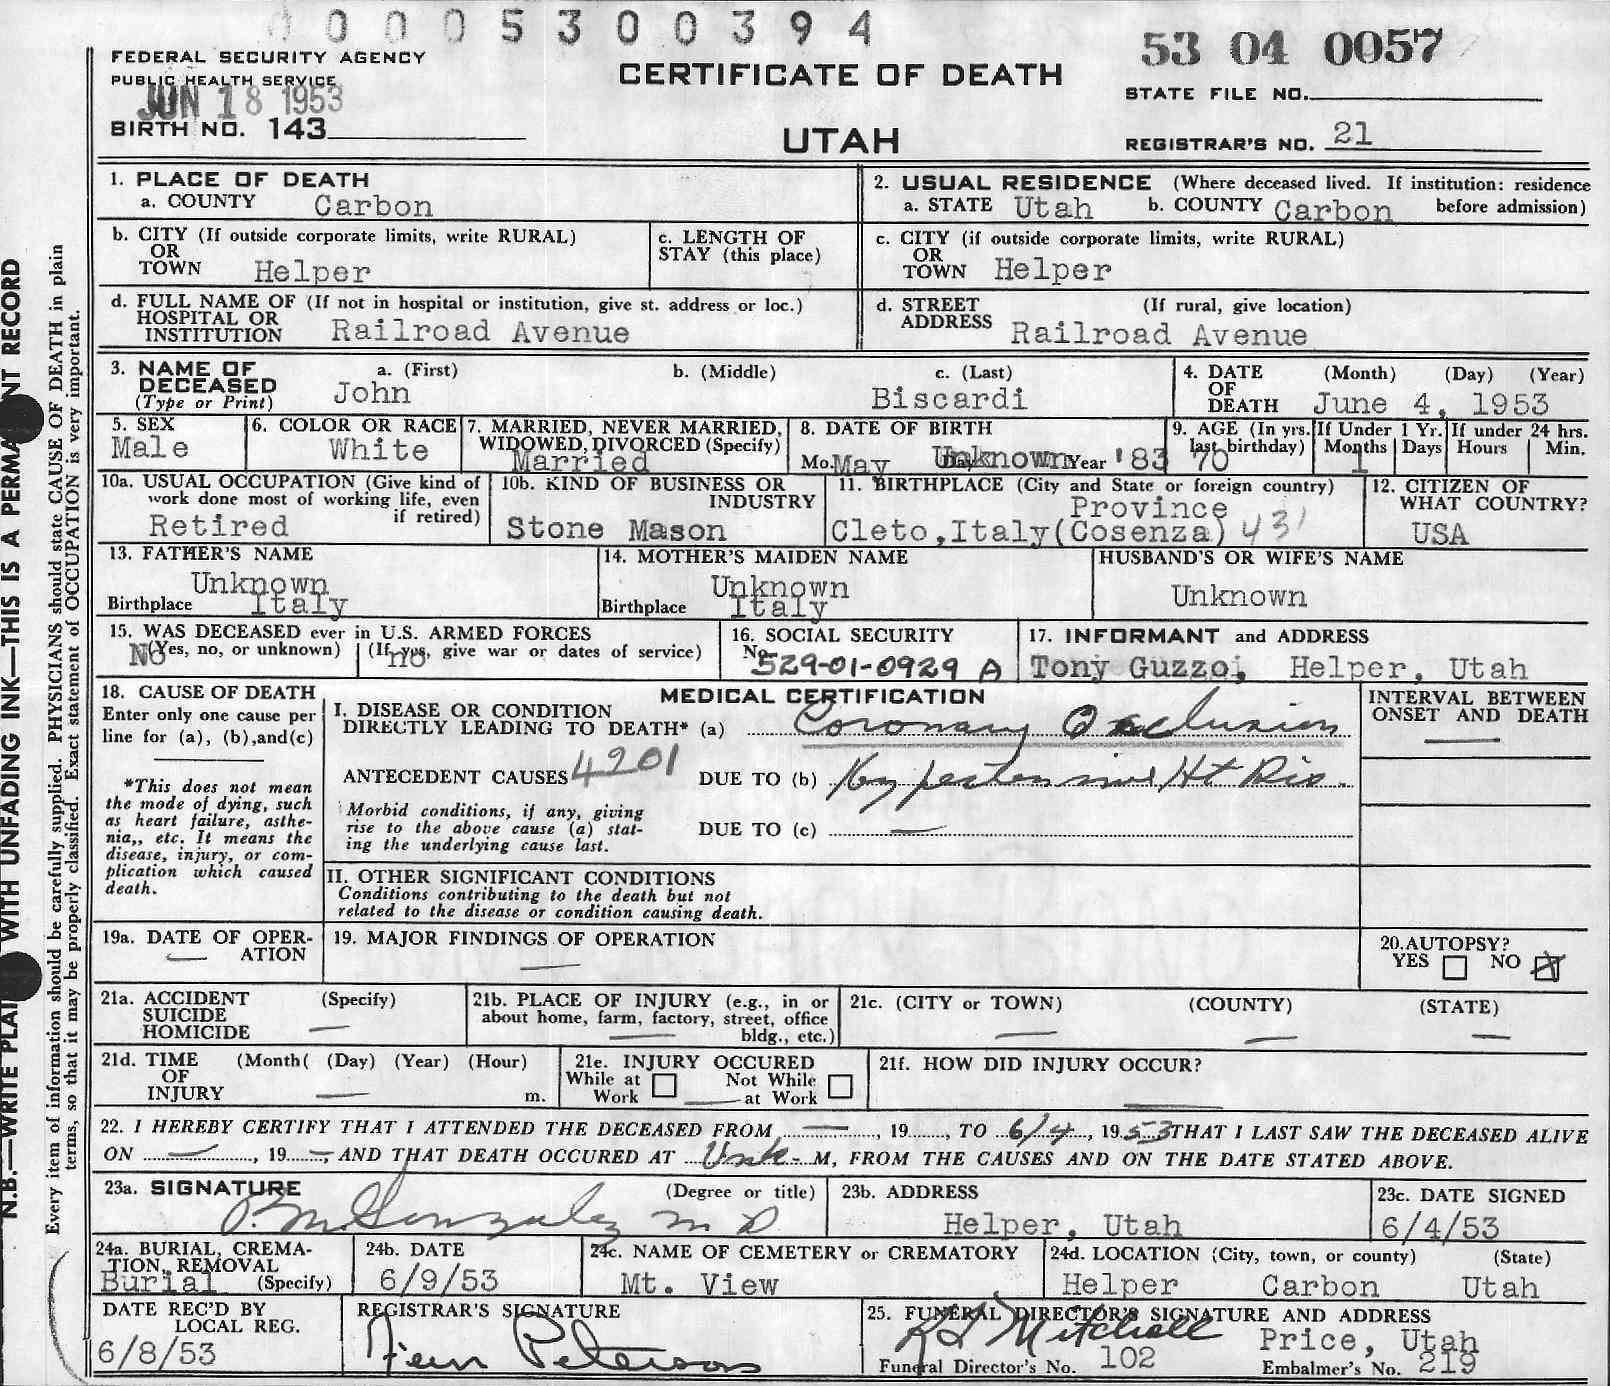 00005300394
FEDERAL SECURITY AGENCY
PUBLIC HEALTH SERVICE
JUN 18 1953
BIRTH NO. 143
CERTIFICATE OF DEATH
UTAH
53 04 0057
STATE FILE NO.
REGISTRAR'S NO. 21
N.B.—WRITE PLAI WITH UNFADING INK—THIS IS A PERMA NT RECORD
Every item of information should be carefully supplied. PHYSICIANS should state CAUSE OF DEATH in plain
terms, so that it may be properly classified. Exact statement of OCCUPATION is very important.
1. PLACE OF DEATH
a. COUNTY Carbon
2. USUAL RESIDENCE (Where deceased lived. If institution: residence
a. STATE Utah b. COUNTY Carbon before admission)
b. CITY (If outside corporate limits, write RURAL)
OR
TOWN Helper
c. LENGTH OF
STAY (this place)
c. CITY (if outside corporate limits, write RURAL)
OR
TOWN Helper
d. FULL NAME OF (If not in hospital or institution, give st. address or loc.)
HOSPITAL OR
INSTITUTION Railroad Avenue
d. STREET (If rural, give location)
ADDRESS Railroad Avenue
3. NAME OF a. (First) b. (Middle) c. (Last)
DECEASED John Biscardi
(Type or Print)
4. DATE (Month) (Day) (Year)
OF
DEATH June 4, 1953
5. SEX
Male
6. COLOR OR RACE
White
7. MARRIED, NEVER MARRIED,
WIDOWED, DIVORCED (Specify)
Married
8. DATE OF BIRTH
Mo. May Day Unknown Year '83
9. AGE (In yrs. If Under 1 Yr. If under 24 hrs.
last birthday) Months Days Hours Min.
70 1
10a. USUAL OCCUPATION (Give kind of
work done most of working life, even
if retired)
Retired
10b. KIND OF BUSINESS OR
INDUSTRY
Stone Mason
11. BIRTHPLACE (City and State or foreign country)
Province
Cleto,Italy(Cosenza) 431
12. CITIZEN OF
WHAT COUNTRY?
USA
13. FATHER'S NAME
Unknown
Birthplace Italy
14. MOTHER'S MAIDEN NAME
Unknown
Birthplace Italy
HUSBAND'S OR WIFE'S NAME
Unknown
15. WAS DECEASED ever in U.S. ARMED FORCES
No (Yes, no, or unknown) (If yes, give war or dates of service)
no
16. SOCIAL SECURITY
No. 529-01-0929 A
17. INFORMANT and ADDRESS
Tony Guzzoi, Helper, Utah
18. CAUSE OF DEATH
Enter only one cause per
line for (a), (b),and(c)
*This does not mean
the mode of dying, such
as heart failure, asthe-
nia,, etc. It means the
disease, injury, or com-
plication which caused
death.
MEDICAL CERTIFICATION
I. DISEASE OR CONDITION
DIRECTLY LEADING TO DEATH* (a) Coronary Occlusion
ANTECEDENT CAUSES 4201 DUE TO (b) Hypertensive Ht Dis.
Morbid conditions, if any, giving
rise to the above cause (a) stat-
ing the underlying cause last.
DUE TO (c) —
INTERVAL BETWEEN
ONSET AND DEATH
—
II. OTHER SIGNIFICANT CONDITIONS
Conditions contributing to the death but not
related to the disease or condition causing death.
19a. DATE OF OPER-
— ATION
19. MAJOR FINDINGS OF OPERATION
—
20.AUTOPSY?
YES NO X
21a. ACCIDENT (Specify)
SUICIDE
HOMICIDE —
21b. PLACE OF INJURY (e.g., in or
about home, farm, factory, street, office
— bldg., etc.)
21c. (CITY or TOWN) (COUNTY) (STATE)
— — —
21d. TIME (Month( (Day) (Year) (Hour)
OF
INJURY — m.
21e. INJURY OCCURED
While at Not While
Work — at Work
21f. HOW DID INJURY OCCUR?
—
22. I HEREBY CERTIFY THAT I ATTENDED THE DECEASED FROM —, 19......, TO 6/4, 1953 THAT I LAST SAW THE DECEASED ALIVE
ON —, 19 —, AND THAT DEATH OCCURED AT Unk- M, FROM THE CAUSES AND ON THE DATE STATED ABOVE.
23a. SIGNATURE (Degree or title)
P. M. Gonzalez M D
23b. ADDRESS
Helper, Utah
23c. DATE SIGNED
6/4/53
24a. BURIAL, CREMA-
TION, REMOVAL
Burial (Specify)
24b. DATE
6/9/53
24c. NAME OF CEMETERY or CREMATORY
Mt. View
24d. LOCATION (City, town, or county) (State)
Helper Carbon Utah
DATE REC'D BY
LOCAL REG.
6/8/53
REGISTRAR'S SIGNATURE
Fern Peterson
25. FUNERAL DIRECTOR'S SIGNATURE AND ADDRESS
Mitchell Price, Utah
Funeral Director's No. 102 Embalmer's No. 219